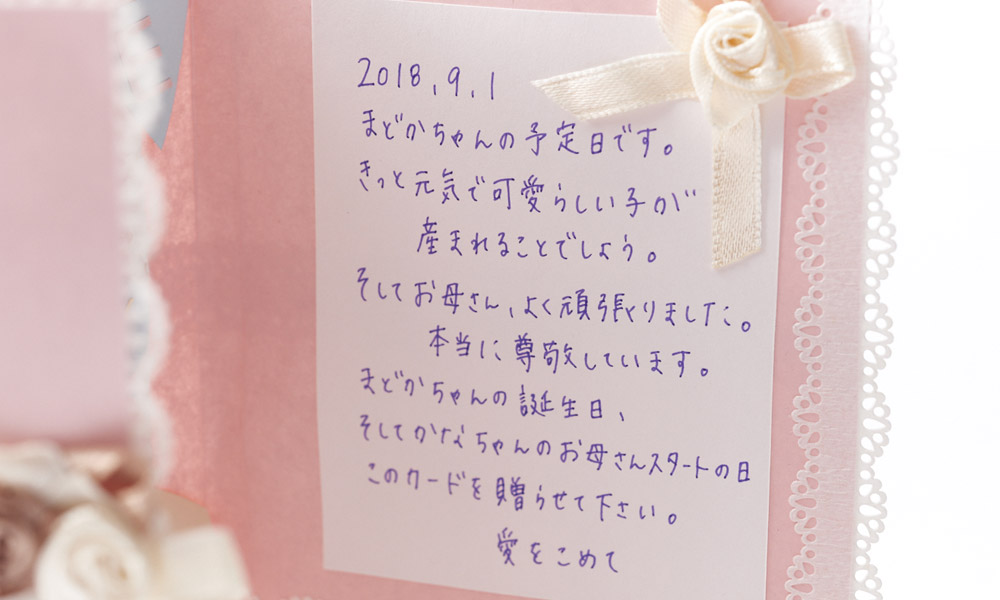 2018.9.1
まどかちゃんの予定日です。
きっと元気で可愛らしい子が
産まれることでしょう。
そしてお母さん、よく頑張りました。
本当に尊敬しています。
まどかちゃんの誕生日、
そしてかなちゃんのお母さんスタートの日
このカードを贈らせて下さい。
愛をこめて